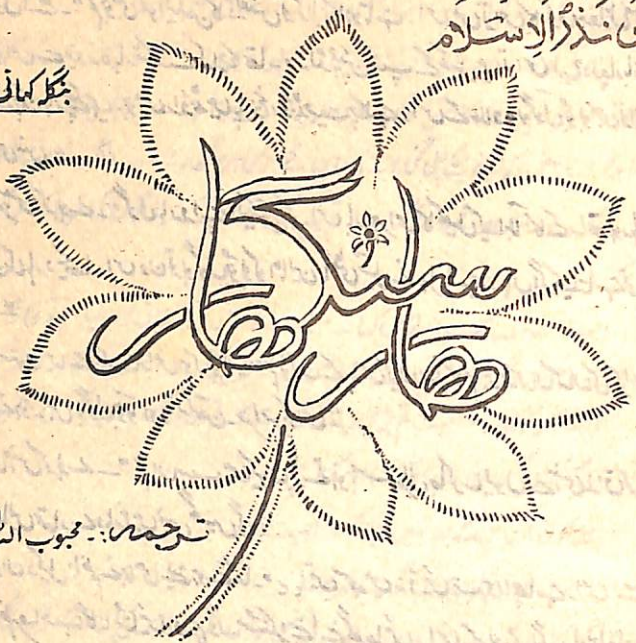 نذرُالاِسلام
بنگلہ کہانی
ھار سنگھار
ترجمہ:۔ محبوب